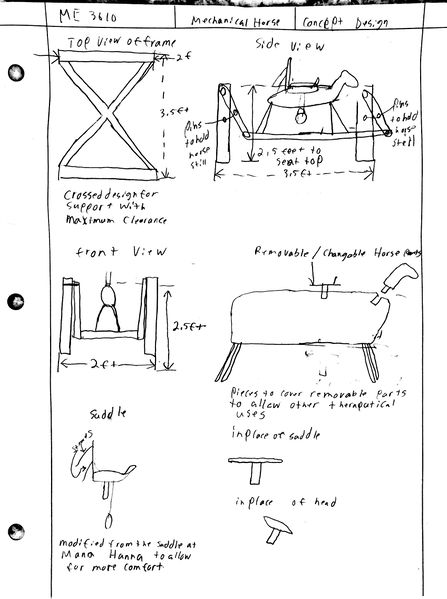 ME 3610
Mechanical Horse
Concept Design
Top View of frame
2f
3.5ft
Crossed design for
support with
Maximum Clearance
Side View
pins
to hold
horse
still
pins
to hold
horse
still
2.5 feet to
seat top
3.5ft
front View
2.5ft
2ft
Removable/Changable Horse parts
pieces to cover removable parts
to allow other theraputical
uses
Saddle
modified from the saddle at
Mana Hanna to allow
for more comfort
in place of saddle
in place of head